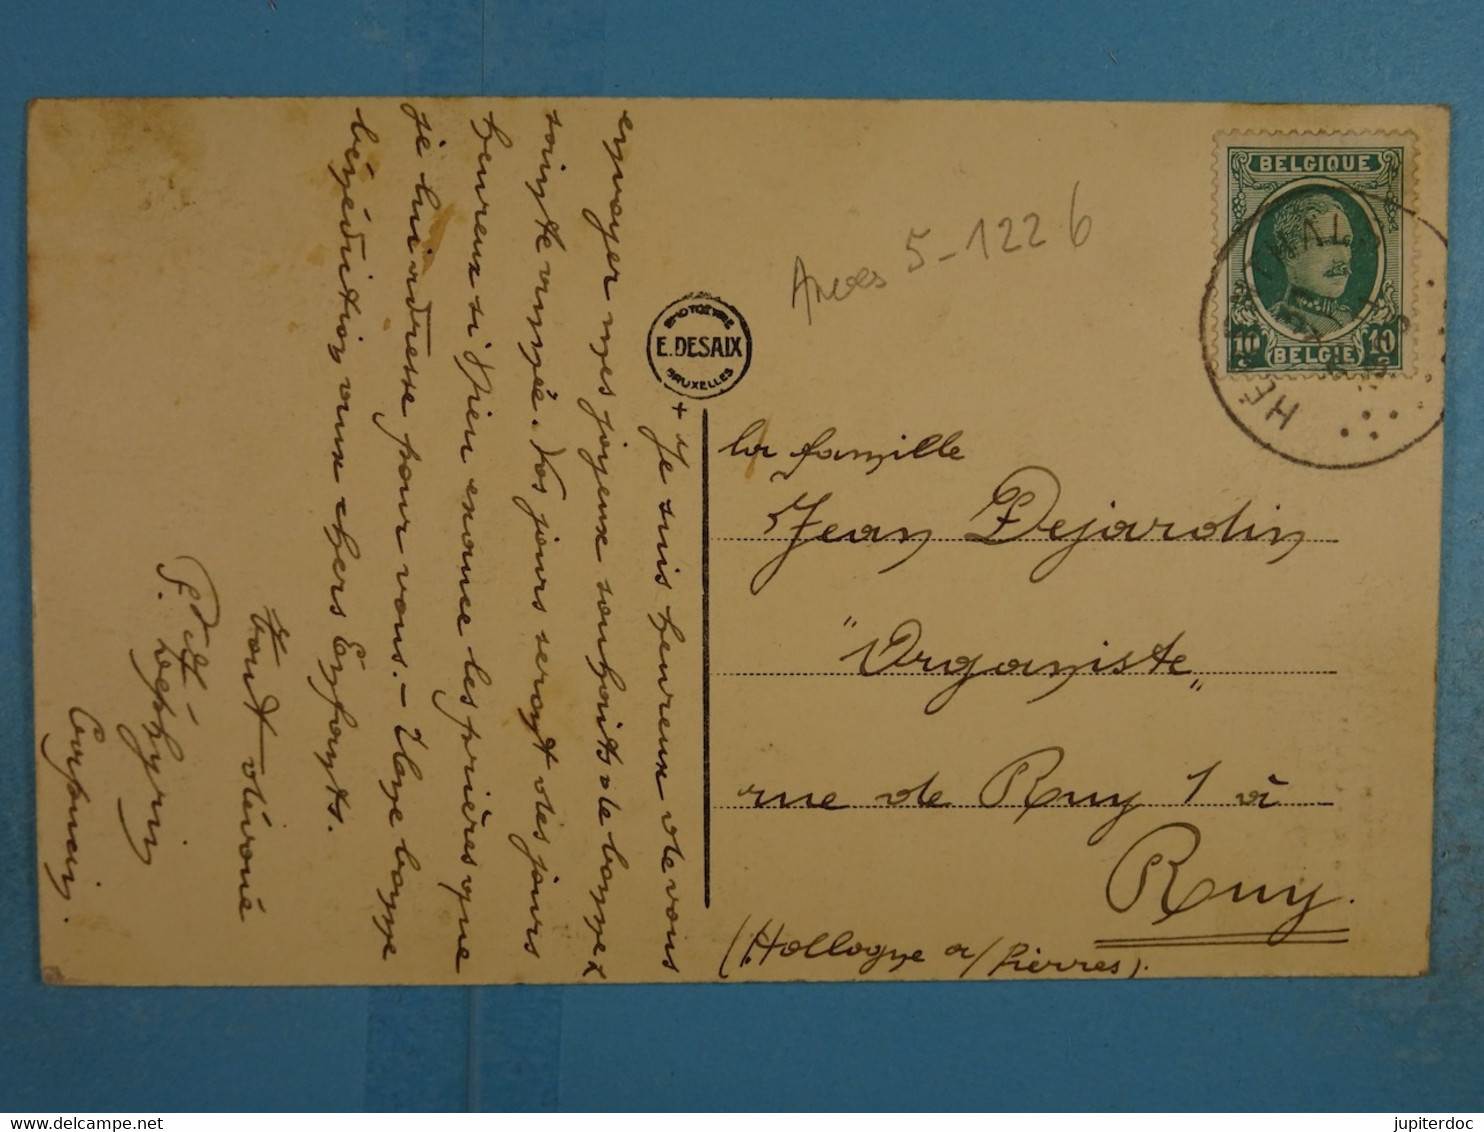 + Je suis heureux de vous
envoyer mes joyeux souhaits de bonne &
sainte année. Vos jours seront des jours
heureux si Dieu exauce les prières que
je lui adresse pour vous. - Une bonne
bénédiction aux chers Enfants.
tout dévoué
F. Zéphyrin
Anvers 5-122 6
BELGIQUE
10 10
BELGIE
E. DESAIX
BRUXELLES
la famille
Jean Dejardin
"Organiste"
rue de Ruy 1 à
Ruy.
(Hollogne a/ Pierres).
jupiterdoc